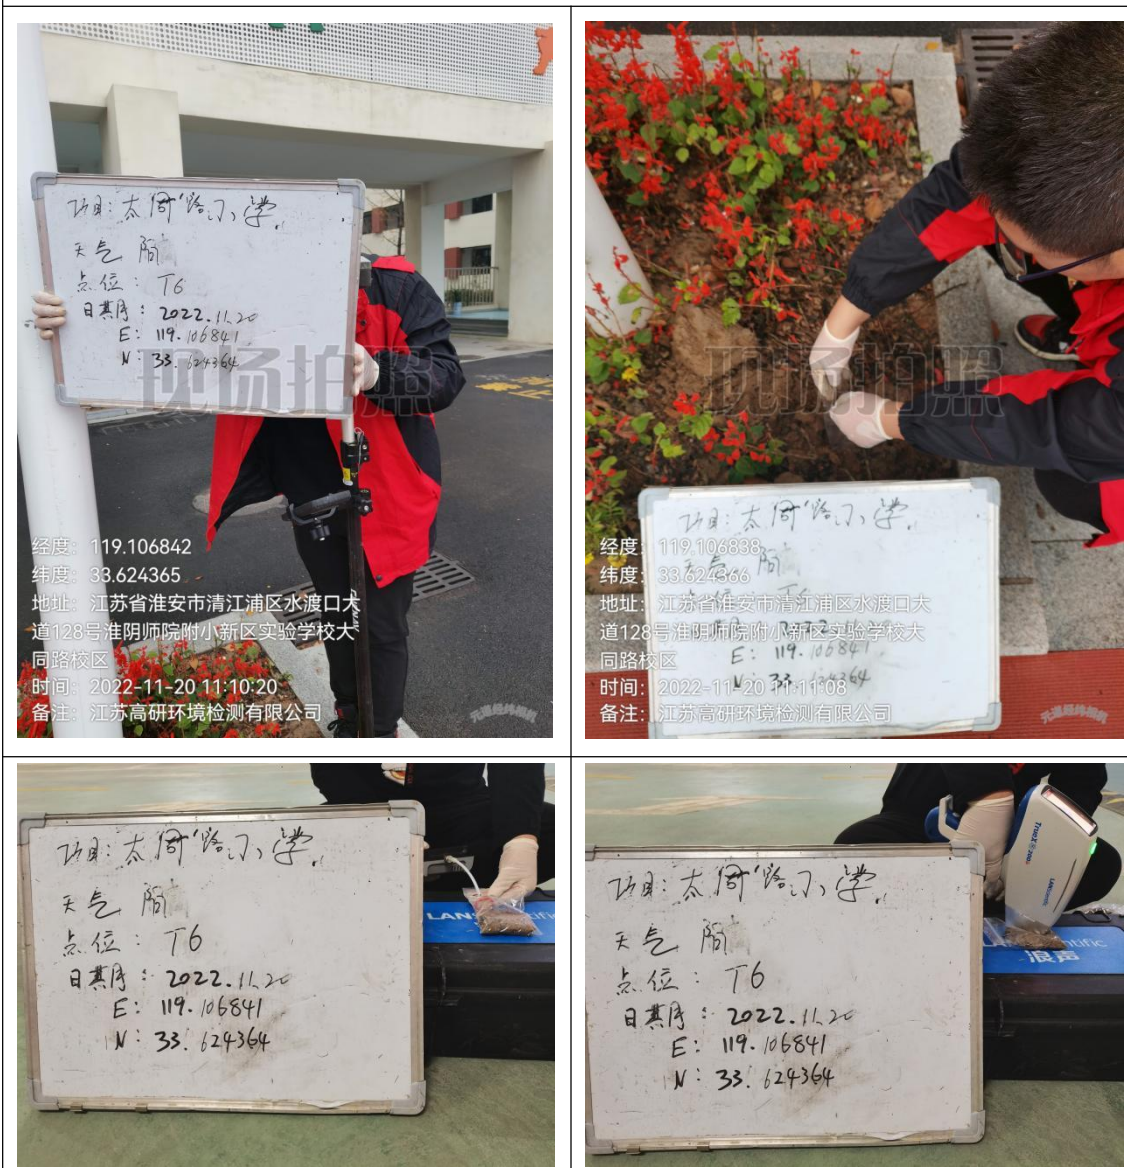 项目：太同路小学
天气 阴
点位：T6
日期：2022.11.20
E：119.106841
N：33.624364
现场拍照
经度：119.106842
纬度：33.624365
地址：江苏省淮安市清江浦区水渡口大
道128号淮阴师院附小新区实验学校大
同路校区
时间：2022-11-20 11:10:20
备注：江苏高研环境检测有限公司
元道经纬相机
项目：太同路小学
天气 阴
点位：T6
E：119.106841
N：33.624364
现场拍照
经度：119.106838
纬度：33.624366
地址：江苏省淮安市清江浦区水渡口大
道128号淮阴师院附小新区实验学校大
同路校区
时间：2022-11-20 11:11:08
备注：江苏高研环境检测有限公司
元道经纬相机
项目：太同路小学
天气 阴
点位：T6
日期：2022.11.20
E：119.106841
N：33.624364
项目：太同路小学
天气 阴
点位：T6
日期：2022.11.20
E：119.106841
N：33.624364
浪声